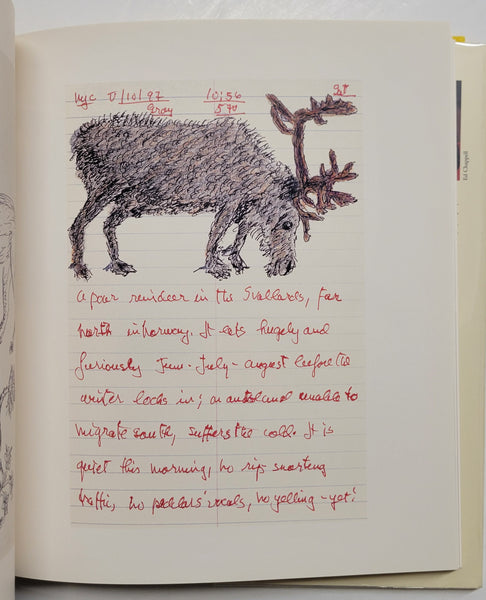 nyc 10:56 Sat
Gray 57°
A poor reindeer in the Svallards, far
north in Norway. It eats hugely and
furiously June - July - august before the
winter locks in; on an island unable to
migrate south, suffers the cold. It is
quiet this morning, no rip snorting
traffic, no peddlars' vocals, no yelling - yet!
Ed Chappell